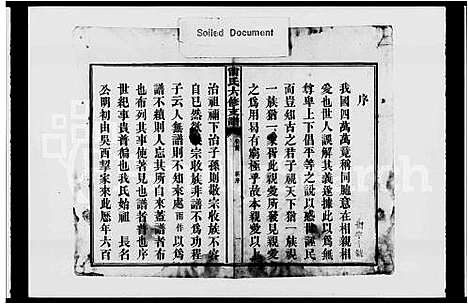 Soiled Document
序
我國四萬萬衆稱同胞意在相親相
愛也世人誤解其義遂據此以爲無
尊卑上下倡平等之說以惑世誣民
而豈知古之君子視天下猶一族視
一族猶一家胥此親愛所發見親愛
之爲用易有窮極乎故本親愛以上
氏六修支譜
治祖禰下治子孫則敬宗收族不容
自已然敬宗收族非譜不爲功程
子云人無譜則不知來處而作以爲
譜不續則人忘其所自來蓋譜者布
也布列其事使著見也譜者普也序
世紀事貴普徧也我氏始祖 長名
公明初由吳西挈家來此歷年六百